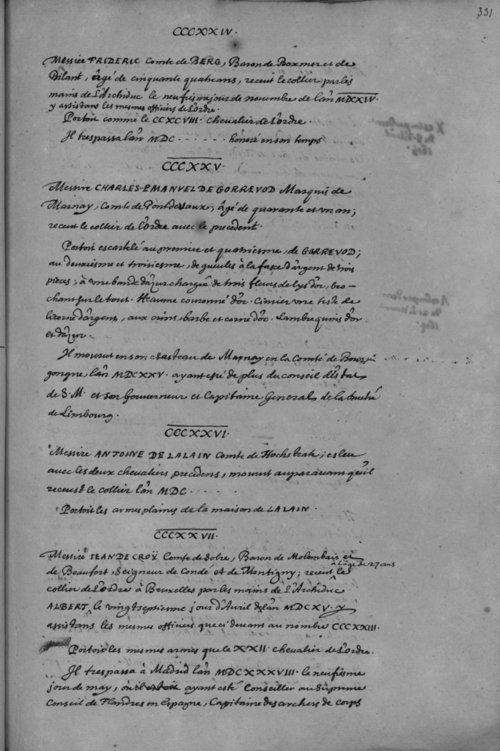 331
CCCXXIV.
Messire FRIDERIC Comte de BERG, Baron de Boxmer et de
Bilant, âgé de cinquante quatre ans, receut le collier par les
mains de L'Archiduc le neufiesme jour de novembre de l'an MDXXIV.
y assistans les mesmes officiers de L'ordre.
Portoit comme le CCXCVIII. Chevalier de L'ordre.
Il trespassa l'an MDC ...... honoré en son temps
CCCXXV.
Messire CHARLES-EMANVEL DE GORREVOD Marquis de
Marnay, Comte de Pontdevaux; âgé de quarante et un an;
receut le collier de L'ordre avec le precedent.
Portoit escartelé au premier et quatriesme, de GORREVOD;
au deuxiesme et troisiesme, de gueules à la fasce d'argent de trois
pieces; à une bande d'azur chargée de trois fleurs de lys d'or, bro-
chant sur le tout. Heaume couronné d'or. Cimier une teste de
licorne d'argent, aux crins, barbe et corne d'or. Lambrequins d'or
et d'azur.
Il mourut en son chasteau de Marnay en la Comté de Bour-
gongne, l'an MDCXXV. ayant esté de plus du conseil d'Estat
de S. M. et son Gouverneur et Capitaine General de la duché
de Limbourg.
CCCXXVI.
Messire ANTOINE DE LALAIN Comte de Hochstrate; esleu
avec les deux chevaliers precedens, mourut auparavant qu'il
receust le collier l'an MDC ......
Portoit les armes plaines de la maison de LALAIN.
CCCXXVII.
Messire JEAN DE CROŸ Comte de Solre, Baron de Molembais et
de Beaufort, Seigneur de Condé et de Montigny; receut âgé de 27 ans le
collier de L'ordre à Bruxelles par les mains de L'Archiduc
ALBERT, le vingtseptiesme jour d'Avril de l'an MDCXV. y
assistans les mesmes officiers que ci devant au nombre CCCXXIII.
Portoit les mesmes armes que le XXII Chevalier de L'ordre.
Il trespassa à Madrid l'an MDCXXXVIII. le neufiesme
jour de may, ayant esté Conseiller au Supreme
Conseil de Flandres en Espagne, Capitaine des archers de corps